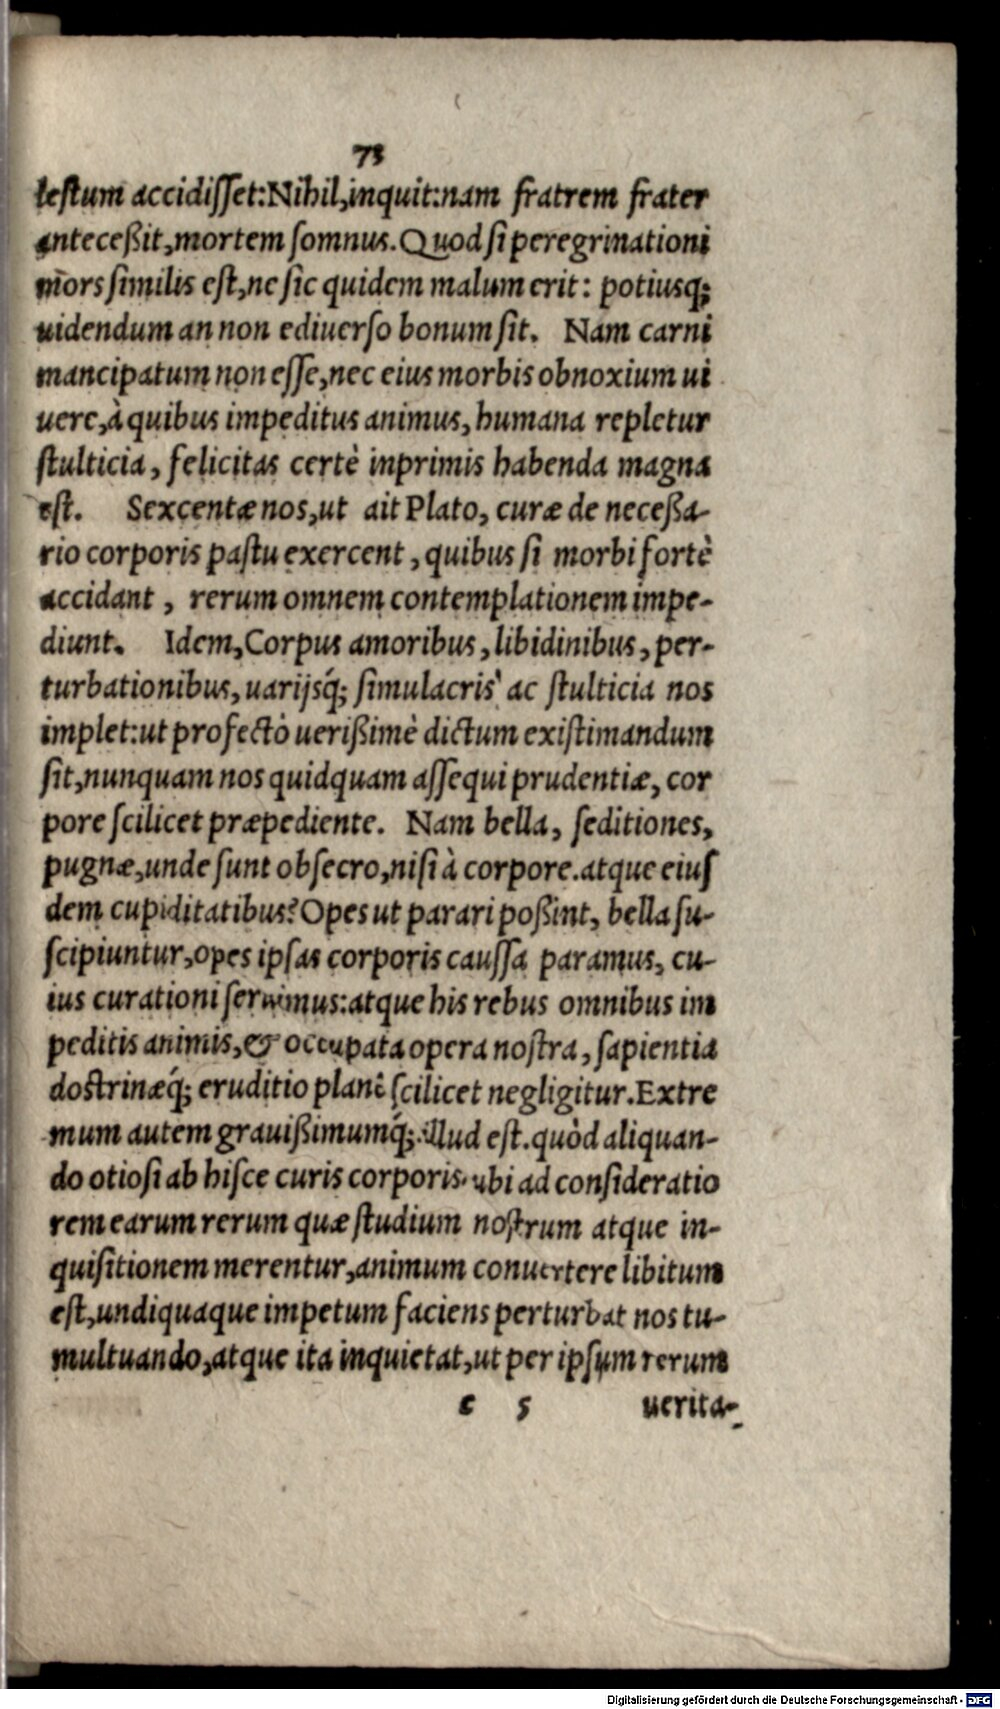 73
lestum accidisset: Nihil, inquit: nam fratrem frater
anteceßit, mortem somnus. Quod si peregrinationi
mors similis est, ne sic quidem malum erit: potiusq;
uidendum an non ediuerso bonum sit. Nam carni
mancipatum non esse, nec eius morbis obnoxium ui
uere, à quibus impeditus animus, humana repletur
stulticia, felicitas certè inprimis habenda magna
est. Sexcentæ nos, ut ait Plato, curæ de neceßa-
rio corporis pastu exercent, quibus si morbi fortè
accidant, rerum omnem contemplationem impe-
diunt. Idem, Corpus amoribus, libidinibus, per-
turbationibus, uarijsq́; simulacris ac stulticia nos
implet: ut profectò uerißimè dictum existimandum
sit, nunquam nos quidquam assequi prudentiæ, cor
pore scilicet præpediente. Nam bella, seditiones,
pugnæ, unde sunt obsecro, nisi à corpore. atque eius
dem cupiditatibus? Opes ut parari poßint, bella su-
scipiuntur, opes ipsas corporis caussa paramus, cu-
ius curationi seruimus: atque his rebus omnibus im
peditis animis, & occupata opera nostra, sapientia
doctrinæq́; eruditio planè scilicet negligitur. Extre
mum autem grauißimumq́; illud est. quòd aliquan-
do otiosi ab hisce curis corporis, ubi ad consideratio
rem earum rerum quæ studium nostrum atque in-
quisitionem merentur, animum conuertere libitum
est, undiquaque impetum faciens perturbat nos tu-
multuando, atque ita inquietat, ut per ipsum rerum
e 5 uerita-
Digitalisierung gefördert durch die Deutsche Forschungsgemeinschaft - DFG